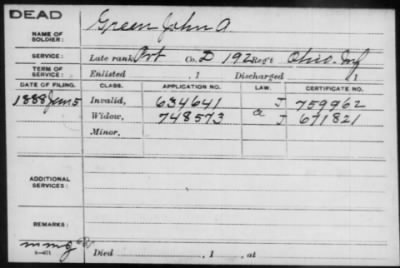 DEAD
NAME OF SOLDIER: Green John A.
SERVICE: Late rank Pvt Co. D 192 Reg't Ohio Inf
TERM OF SERVICE: Enlisted , 1 Discharged , 1
DATE OF FILING. CLASS. APPLICATION NO. LAW. CERTIFICATE NO.
1888 Jan 5 Invalid, 634641 J 759962
Widow, 748573 a J 671821
Minor,
ADDITIONAL SERVICES:
REMARKS:
Died , 1 , at